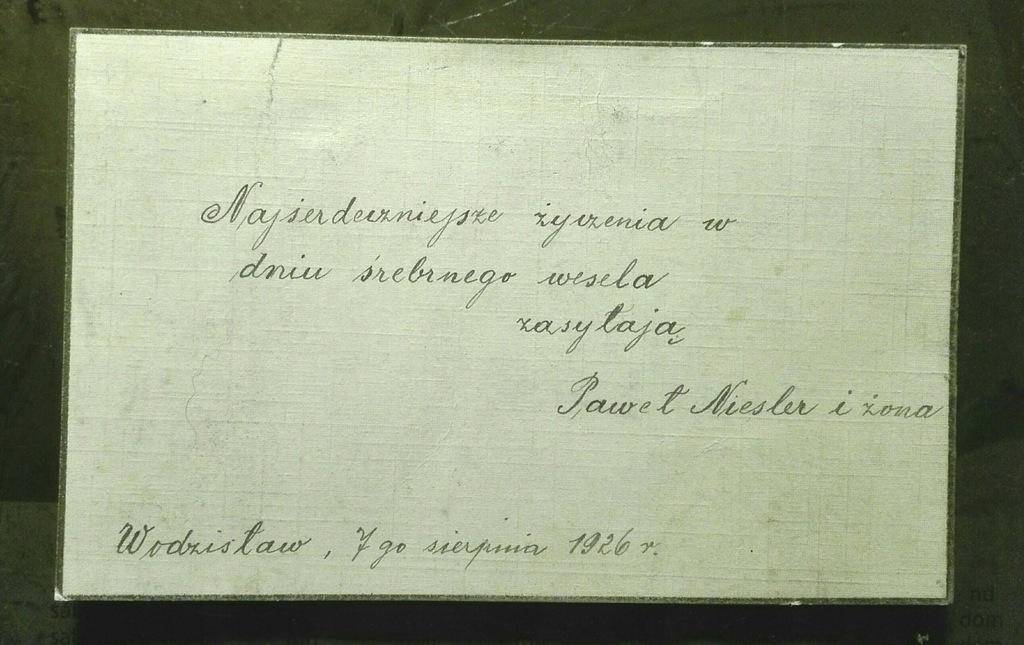 Najśerdeczniejsze życzenia w
dniu śrebrnego wesela
zasyłają
Paweł Niesler i żona
Wodzisław, 7go sierpnia 1926 r.
nd
dom